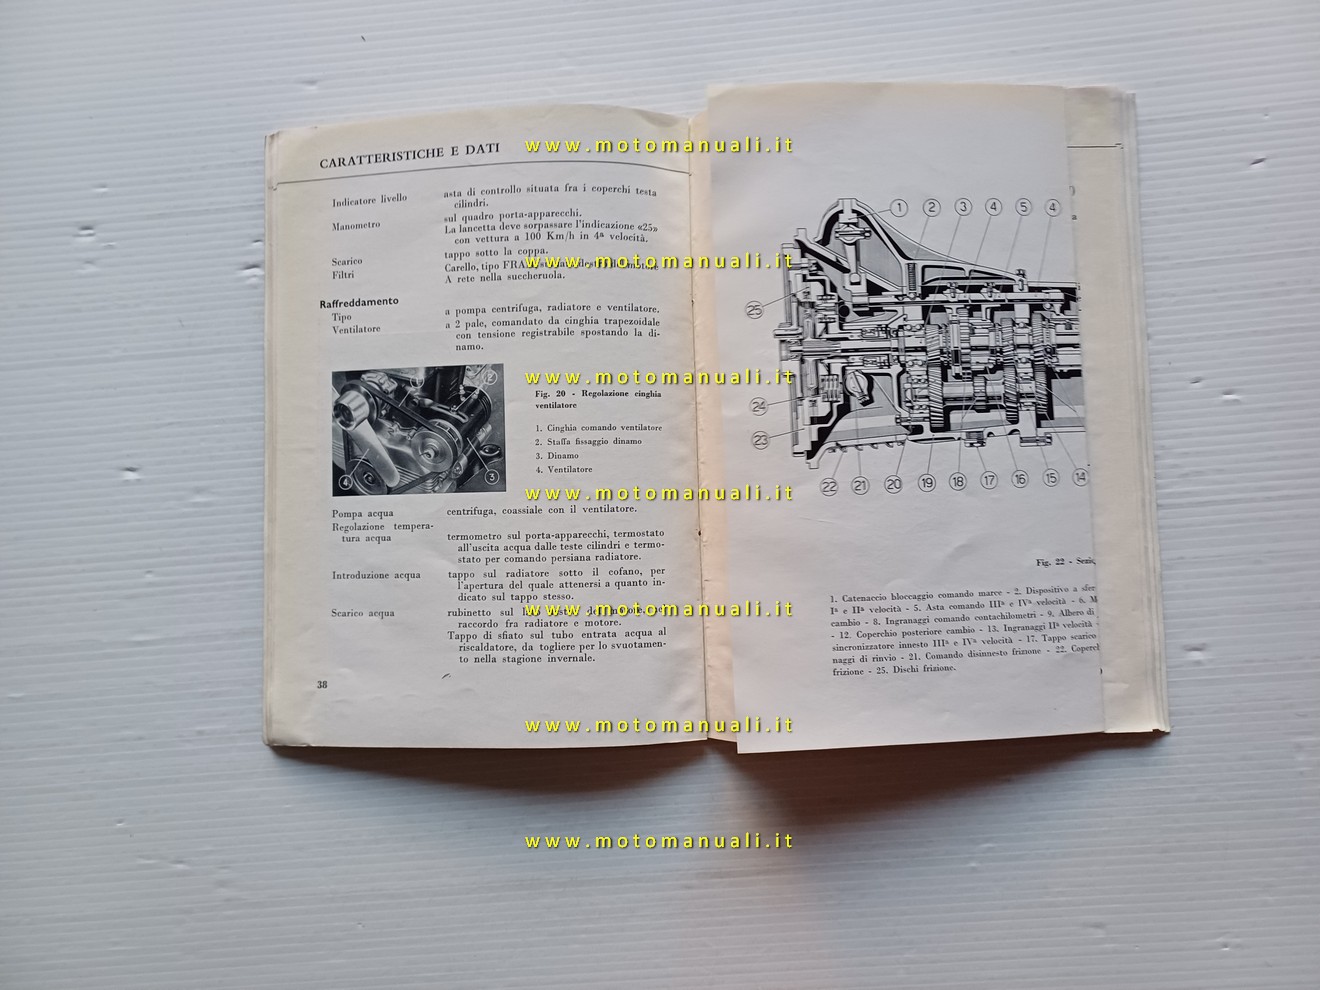 CARATTERISTICHE E DATI
Indicatore livello
asta di controllo situata fra i coperchi testa
cilindri.
Manometro
sul quadro porta-apparecchi.
La lancetta deve sorpassare l'indicazione «25»
con vettura a 100 Km/h in 4ª velocità.
Scarico
tappo sotto la coppa.
Filtri
Carello, tipo
A rete nella succheruola.
Raffreddamento
Tipo
a pompa centrifuga, radiatore e ventilatore.
Ventilatore
a 2 pale, comandato da cinghia trapezoidale
con tensione registrabile spostando la di-
namo.
2
3
4
Fig. 20 - Regolazione cinghia
ventilatore
1. Cinghia comando ventilatore
2. Staffa fissaggio dinamo
3. Dinamo
4. Ventilatore
Pompa acqua
centrifuga, coassiale con il ventilatore.
Regolazione tempera-
tura acqua
termometro sul porta-apparecchi, termostato
all'uscita acqua dalle teste cilindri e termo-
stato per comando persiana radiatore.
Introduzione acqua
tappo sul radiatore sotto il cofano, per
l'apertura del quale attenersi a quanto in-
dicato sul tappo stesso.
Scarico acqua
rubinetto sul
raccordo fra radiatore e motore.
Tappo di sfiato sul tubo entrata acqua al
riscaldatore, da togliere per lo svuotamen-
to nella stagione invernale.
38
1 2 3 4 5 4
25
24
23
22 21 20 19 18 17 16 15 14
Fig. 22 - Sezio
1. Catenaccio bloccaggio comando marce - 2. Dispositivo a sfer
Iª e IIª velocità - 5. Asta comando IIIª e IVª velocità - 6. M
cambio - 8. Ingranaggi comando contachilometri - 9. Albero di
- 12. Coperchio posteriore cambio - 13. Ingranaggi IIª velocità -
sincronizzatore innesto IIIª e IVª velocità - 17. Tappo scarico
naggi di rinvio - 21. Comando disinnesto frizione - 22. Coperc
frizione - 25. Dischi frizione.
www.motomanuali.it
www.motomanuali.it
www.motomanuali.it
www.motomanuali.it
www.motomanuali.it
www.motomanuali.it
www.motomanuali.it